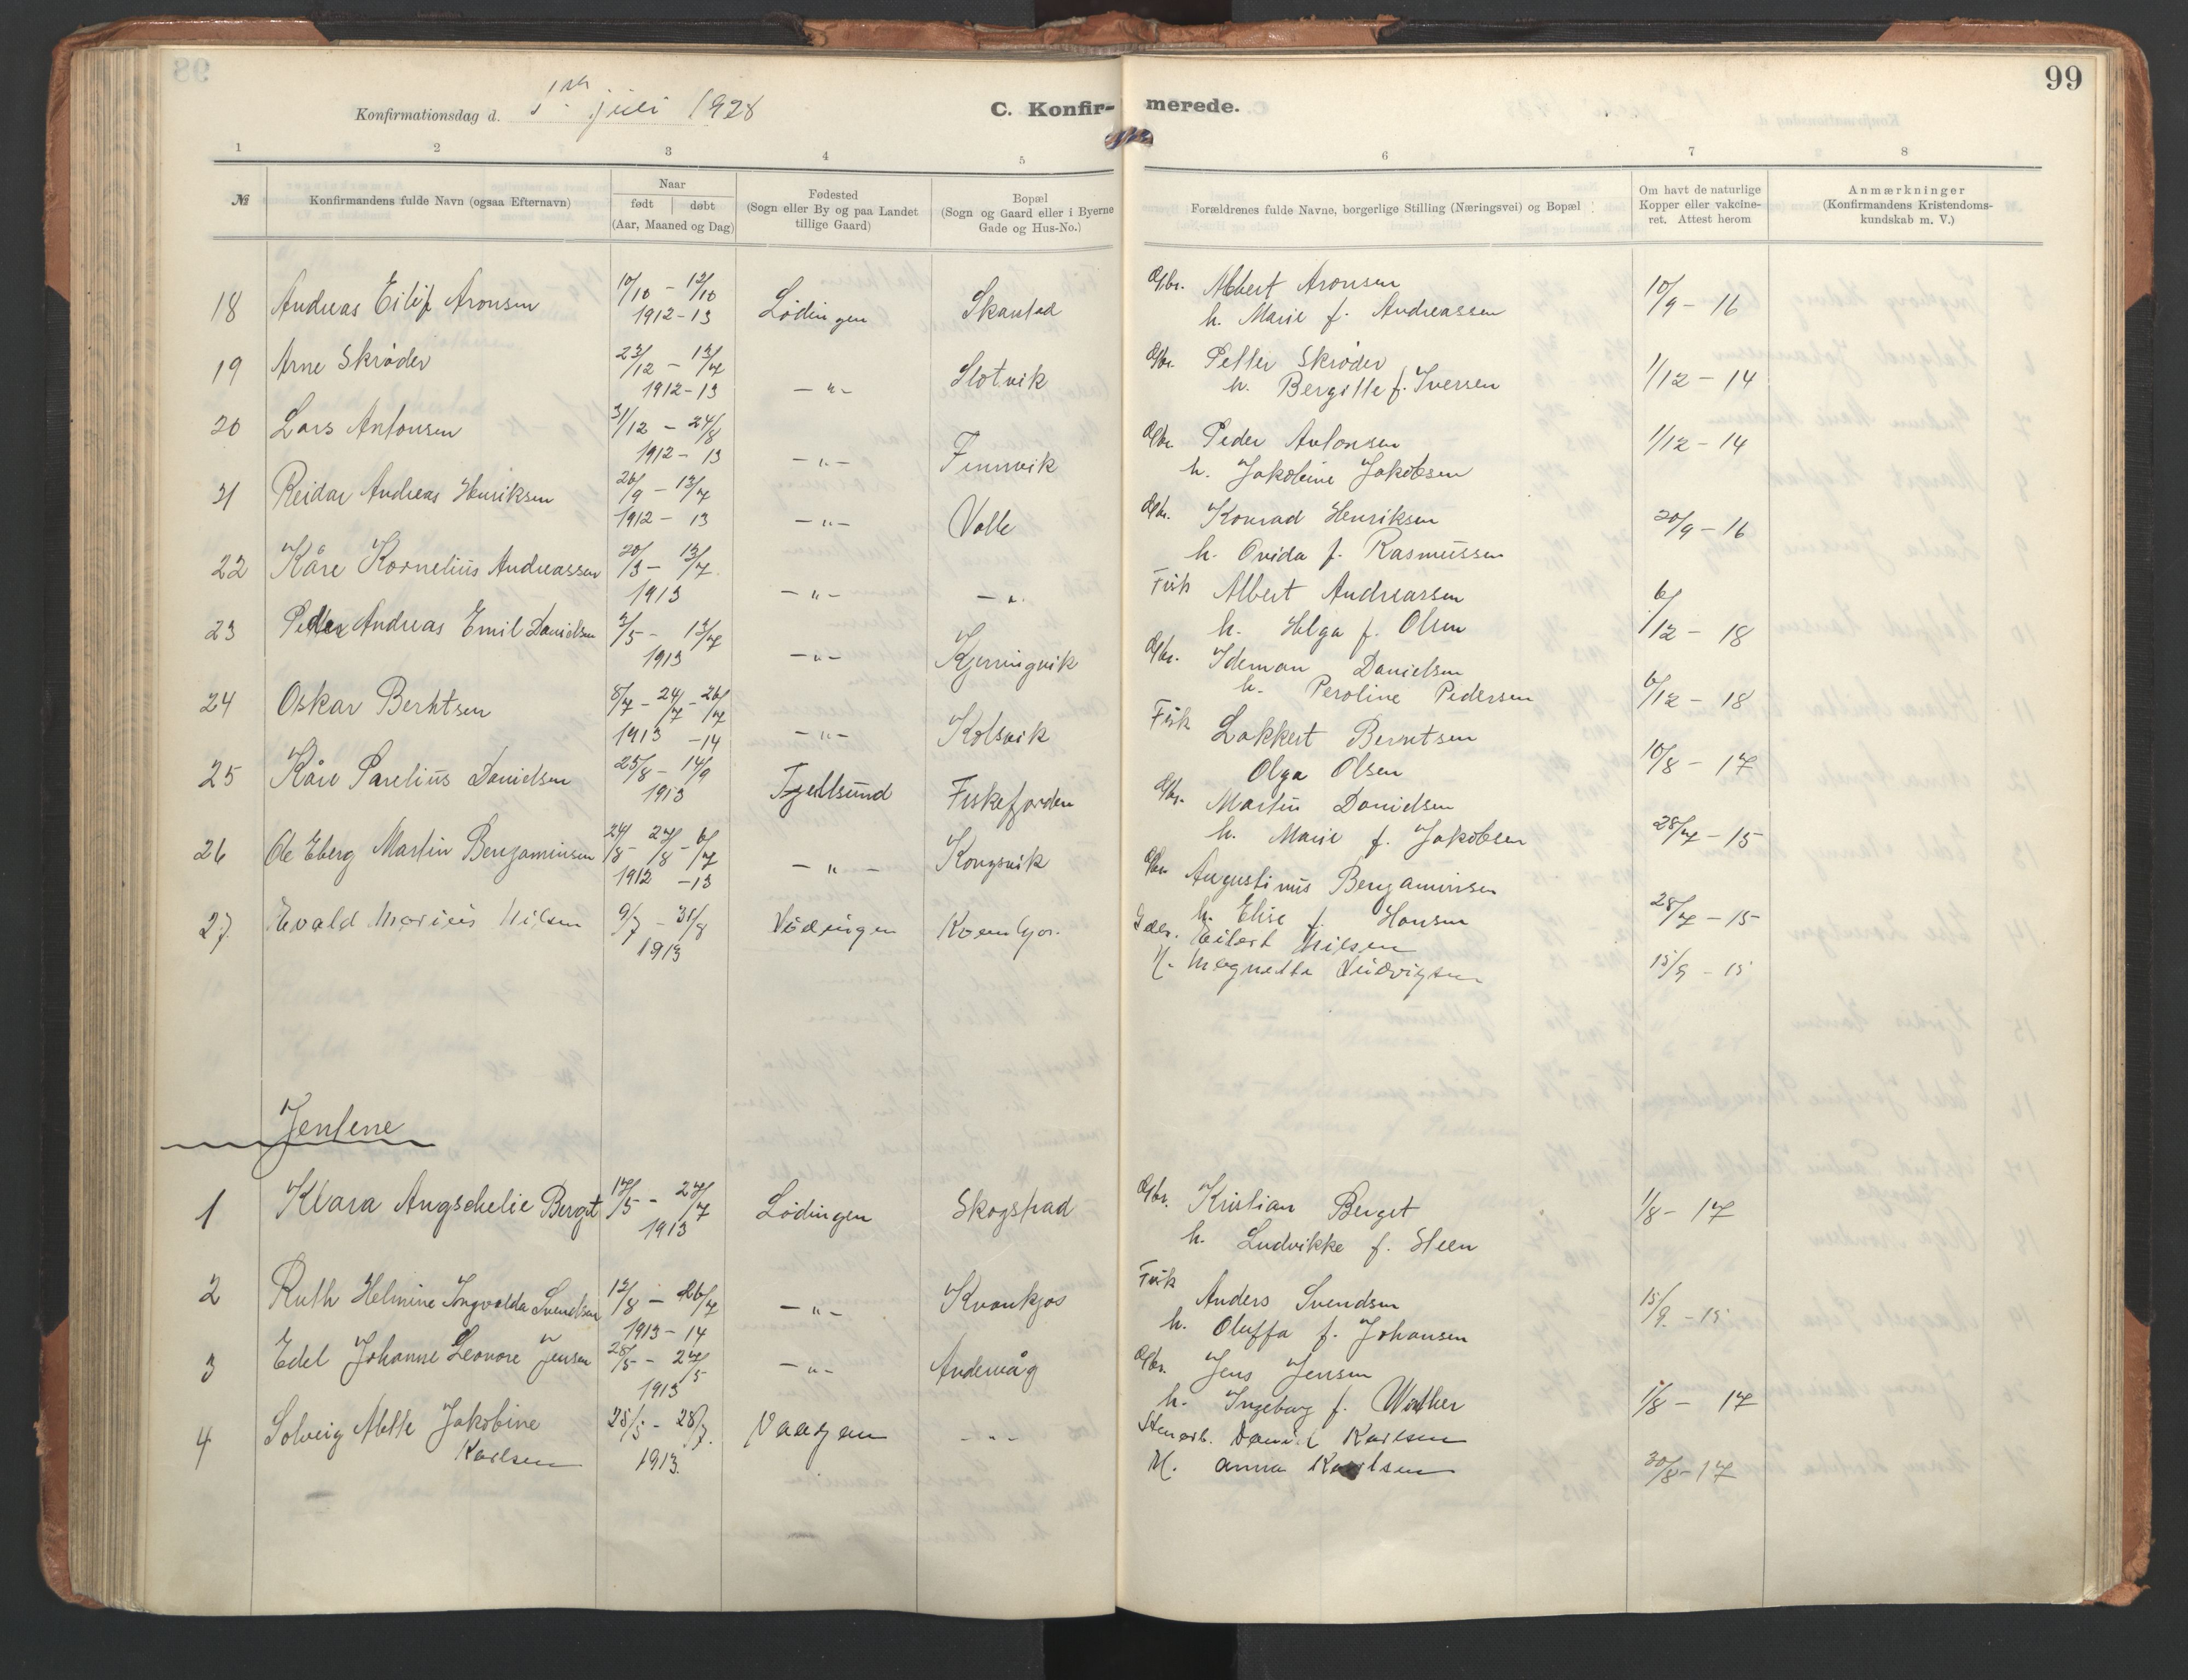 99
Konfirmationsdag d. 1ste juli 1928
C. Konfir- merede.
1 2 3 4 5 6 7 8
№
Konfirmandens fulde Navn (ogsaa Efternavn)
Naar
født døbt
(Aar, Maaned og Dag)
Fødested
(Sogn eller By og paa Landet
tillige Gaard)
Bopæl
(Sogn og Gaard eller i Byerne
Gade og Hus-No.)
Forældrenes fulde Navne, borgerlige Stilling (Næringsvei) og Bopæl
Om havt de naturlige
Kopper eller vakcine-
ret. Attest herom
Anmærkninger
(Konfirmandens Kristendoms-
kundskab m. V.)
18 Andreas Eilif Aronsen 10/10 - 12/10 1912-13 Lødingen Skanstad Gbr. Albert Aronsen 10/9 - 16
h. Marie f. Andreassen
19 Arne Skrøder 23/12 - 13/7 1912-13 -"- Slotvik Gbr. Petter Skrøder 1/12 - 14
h. Bergitte f. Iversen
20 Lars Antonsen 31/12 - 24/8 1912-13 -"- Finnvik Gbr. Peder Antonsen 1/12 - 14
h. Jakobine Jakobsen
21 Reidar Andreas Henriksen 26/9 - 13/7 1912-13 -"- Valle Gbr. Konrad Henriksen 20/9 - 16
h. Ovida f. Rasmussen
22 Kåre Kornelius Andreassen 20/3 - 13/7 1913 -"- -"- Fisk Albert Andreassen 6/12 - 18
h. Helga f. Olsen
23 Peder Andreas Emil Danielsen 2/5 - 13/7 1913 -"- Kjerringvik Gbr. Ideman Danielsen 6/12 - 18
h. Peroline Pedersen
24 Oskar Berntsen 8/7 - 24/7 - 26/7 1913 -14 -"- Kolsvik Fisk Lakkert Berntsen 10/8 - 17
Olga Olsen
25 Kåre Parelius Danielsen 25/8 - 14/9 1913 Tjeldsund Fiskefjorden Gbr. Martin Danielsen 28/7 - 15
h. Marie f. Jakobsen
26 Ole Eberg Martin Benjaminsen 24/8 - 27/8 - 6/7 1912 -13 -"- Kongsvik Gbr. Augustinus Benjaminsen 28/7 - 15
h. Elise f. Hansen
27 Evald Marius Nilsen 9/7 - 31/8 1913 Lødingen Eilert Nilsen 15/9 - 15
H. Magnella Ludvigsen
Jentene
1 Klara Angschelie Berget 17/5 - 27/7 1913 Lødingen Skogstad Gbr. Kristian Berget 1/8 - 17
h. Ludvikke f. Steen
2 Ruth Helmine Ingvalda Svendsen 12/8 - 26/7 1913-14 -"- Kvankjos Fisk Anders Svendsen 15/9 - 15
h. Oluffa f. Johansen
3 Edel Johanne Leonore Jensen 28/5 - 27/5 1913 -"- Andenvåg Gbr. Jens Jensen 1/8 - 17
h. Ingeborg f. Winther
4 Solveig Mette Jakobine 25/5 - 28/7 1913. Vaagan -"- Stenarb. Daniel Karlsen 30/8 - 17
Karlsen H. Anna Karlsen